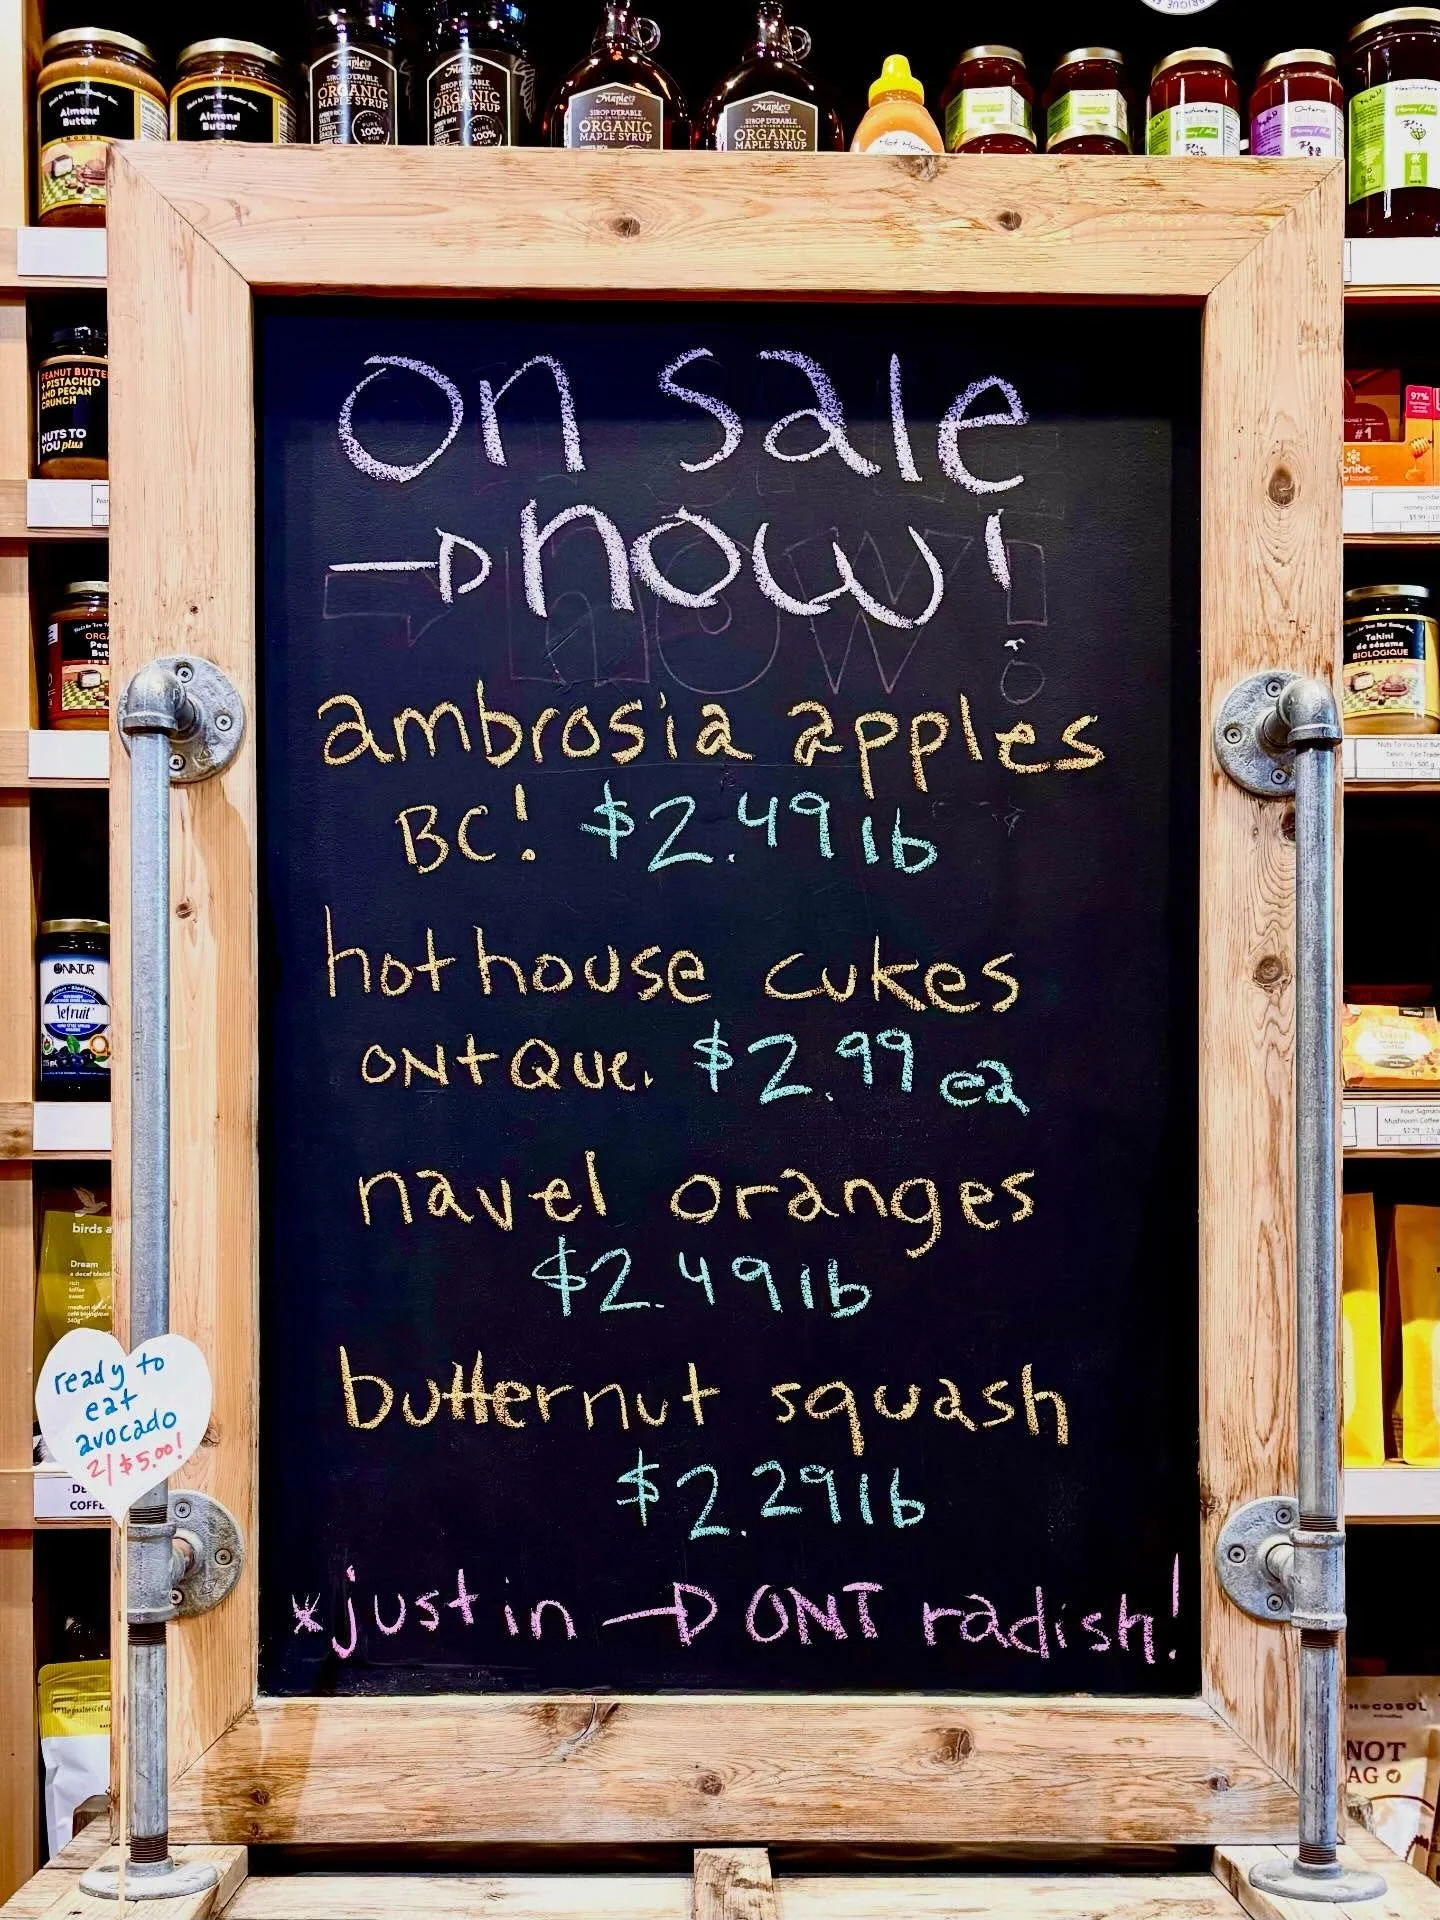 Almond
Butter
Almond
Butter
SIROP D'ÉRABLE
ORGANIC
MAPLE SYRUP
100%
ORGANIC
MAPLE SYRUP
100%
SIROP D'ÉRABLE
ORGANIC
MAPLE SYRUP
SIROP D'ÉRABLE
ORGANIC
MAPLE SYRUP
Hot Honey
PEANUT BUTTER
+ PISTACHIO
AND PECAN
CRUNCH
NUTS TO
YOU plus
on sale
now!
ambrosia apples
BC! $2.49 lb
hothouse cukes
ONT + QUE. $2.99 ea
navel oranges
$2.49 lb
butternut squash
$2.29 lb
*just in → ONT radish!
ready to
eat
avocado
2/$5.00!
97%
#1
Tahini
de sésame
BIOLOGIQUE
birds
Dream
a decaf blend
COFFE
NOT